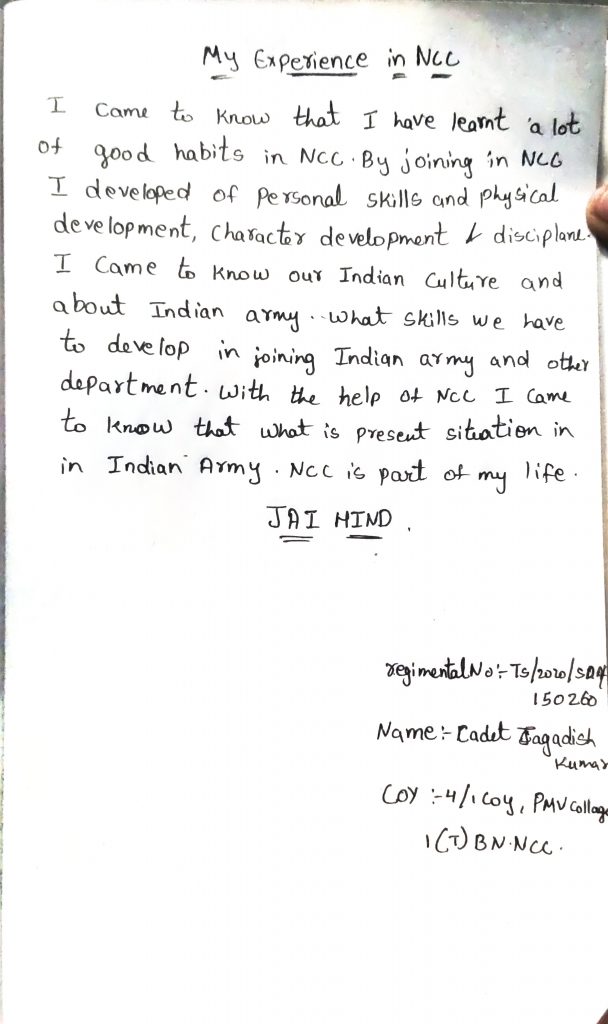 My Experience in NCC
I came to know that I have learnt a lot
of good habits in NCC. By joining in NCC
I developed of Personal skills and physical
development, Character development & disciplane.
I Came to know our Indian Culture and
about Indian army.. what skills we have
to develop in joining Indian army and other
department. With the help of NCC I Came
to know that what is present situation in
in Indian Army. NCC is part of my life.
JAI HIND.
regimental No:- TS/2020/SDA
150260
Name:- Cadet Jagadish
Kumar
COY :- 4/1 coy, PMV Collage
1(T) BN.NCC.